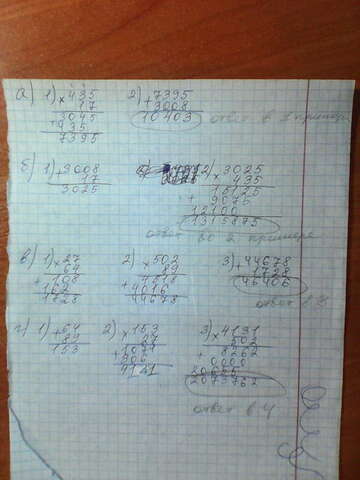 а) 1) ×435 2) +7395
17 3008
3045 10403 ответ в 1 примере
+435
7395
б) 1) +3008 2) ×3025
17 435
3025 15125
+ 9075
12100
1315875
ответ во 2 примере
в) 1) ×27 2) ×502 3) +44678
64 89 1728
+108 4518 46406
162 +4016 ответ в 3
1728 44678
г) 1) +64 2) ×153 3) ×4131
89 27 502
153 1071 + 8262
306 0000
4131 20655
2073762
ответ в 4